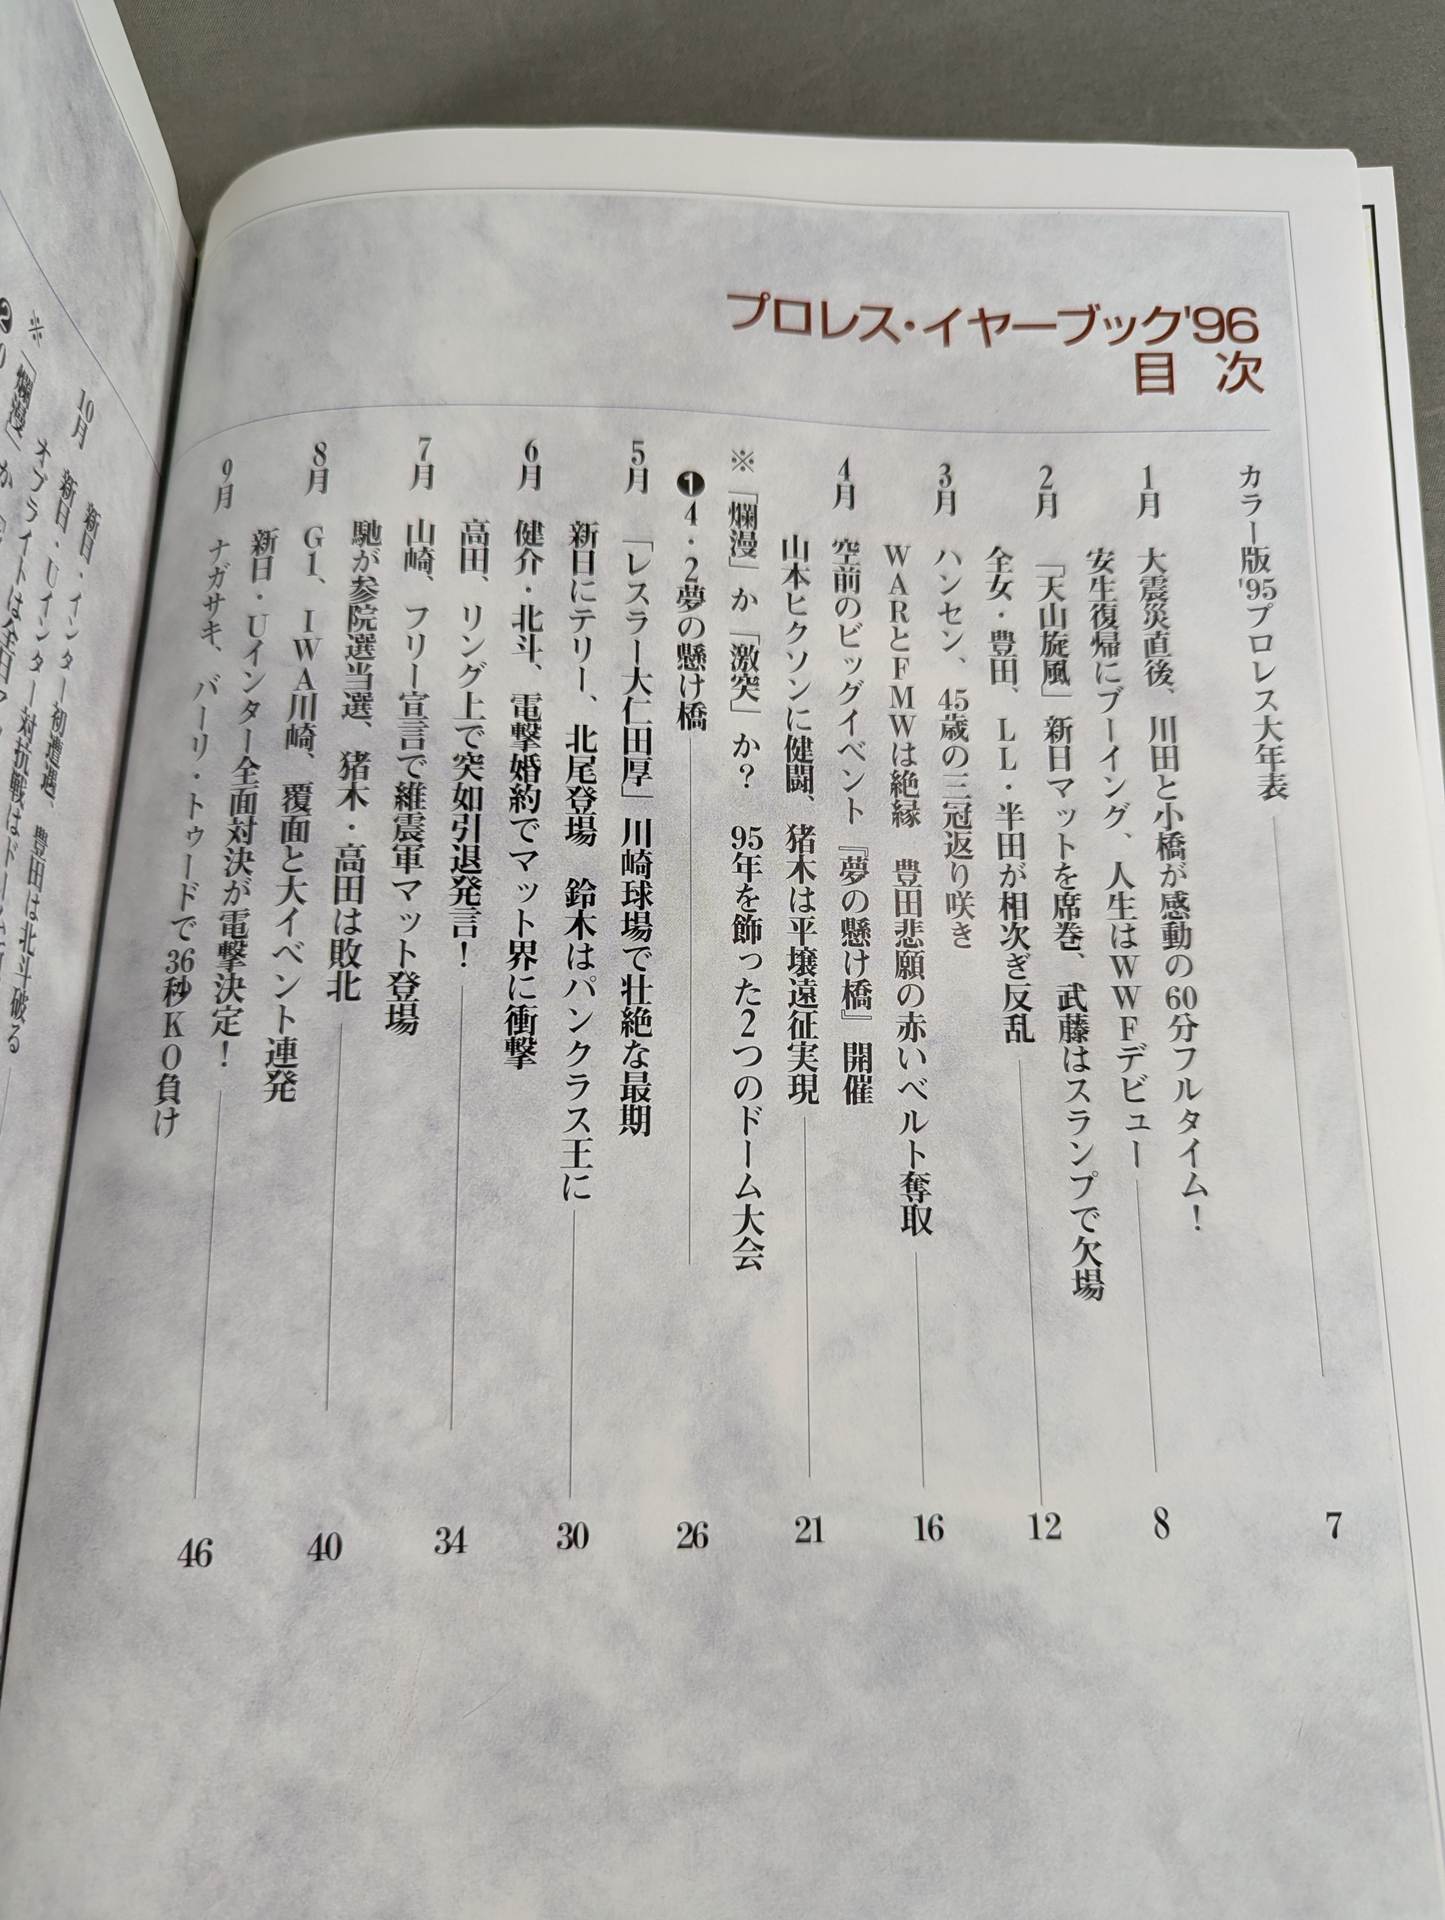 プロレス・イヤーブック'96
目次
カラー版'95プロレス大年表 7
1月 大震災直後、川田と小橋が感動の60分フルタイム！
安生復帰にブーイング、人生はWWFデビュー 8
2月 「天山旋風」新日マットを席巻、武藤はスランプで欠場
全女・豊田、LL・半田が相次ぎ反乱 12
3月 ハンセン、45歳の三冠返り咲き
WARとFMWは絶縁 豊田悲願の赤いベルト奪取 16
4月 空前のビッグイベント『夢の懸け橋』開催
山本ヒクソンに健闘、猪木は平壌遠征実現 21
※「爛漫」か「激突」か？ 95年を飾った2つのドーム大会
❶4・2夢の懸け橋 26
5月 「レスラー大仁田厚」川崎球場で壮絶な最期
新日にテリー、北尾登場 鈴木はパンクラス王に 30
6月 健介・北斗、電撃婚約でマット界に衝撃
高田、リング上で突如引退発言！ 34
7月 山崎、フリー宣言で維震軍マット登場
馳が参院選当選、猪木・高田は敗北 40
8月 G1、IWA川崎、覆面と大イベント連発
新日・Uインター全面対決が電撃決定！ 46
9月 ナガサキ、バーリ・トゥードで36秒KO負け
新日・インター初遭遇、豊田は北斗破る
10月 新日・Uインター対抗戦はドー
オブライトは全日マ
※「爛漫」か
❷